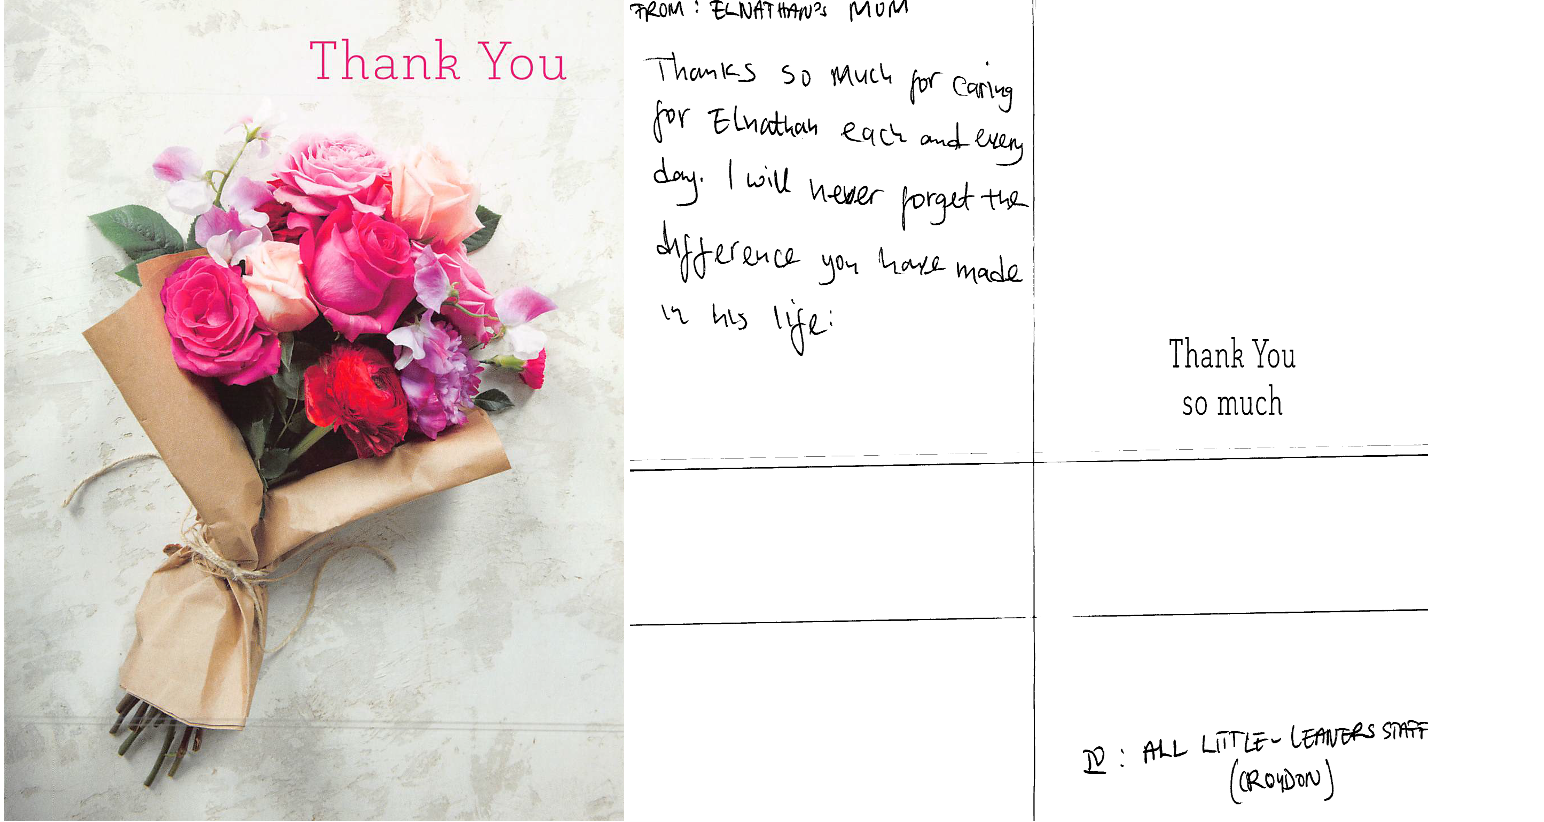 Thank You
FROM: ELNATHAN's MUM
Thanks so much for caring
for Elnathan each and every
day. I will never forget the
difference you have made
in his life:
Thank You
so much
TO: ALL LITTLE-LEANERS STAFF
(CROYDON)